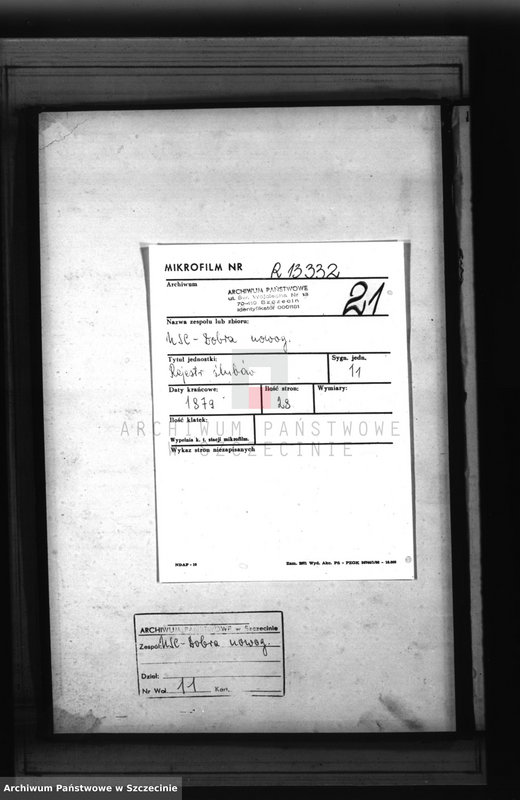 MIKROFILM NR R 13332
Archiwum
ARCHIWUM PAŃSTWOWE
ul. Św. Wojciecha Nr 13
70-410 Szczecin
21
Nazwa zespołu lub zbioru:
USC - Dobra nowog.
Tytuł jednostki:
Rejestr ślubów
Sygn. jedn.
11
Daty krańcowe:
1879
Ilość stron:
28
Wymiary:
Ilość klatek:
Wypełnia k. t. stacji mikrofilm.
ARCHIWUM PAŃSTWOWE
W SZCZECINIE
Wykaz stron niezapisanych
NDAP - 10
ARCHIWUM PAŃSTWOWE w Szczecinie
Zespół USC - Dobra nowog.
Dział:
Nr Wol. 11 Kart.
Archiwum Państwowe w Szczecinie